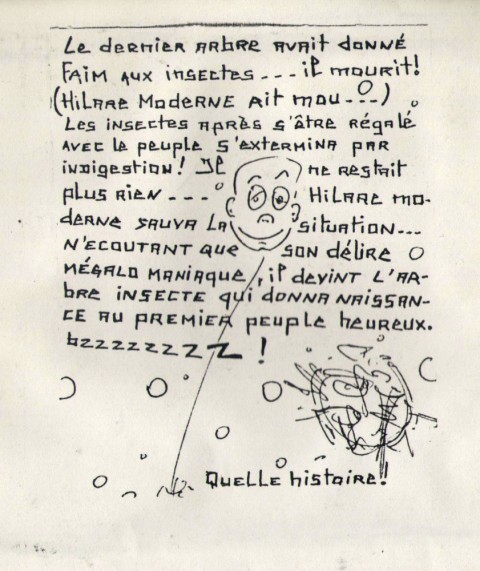 Le dernier arbre avait donné
faim aux insectes --- il mourit!
(Hilare Moderne ait mou---)
Les insectes après s'âtre régalé
avec le peuple s'extermina par
indigestion! Il ne restait
plus rien --- Hilare mo-
derne sauva la situation...
n'écoutant que son délire
mégalo maniaque, il devint l'ar-
bre insecte qui donna naissan-
ce au premier peuple heureux.
bzzzzzzzz!
Quelle histoire!